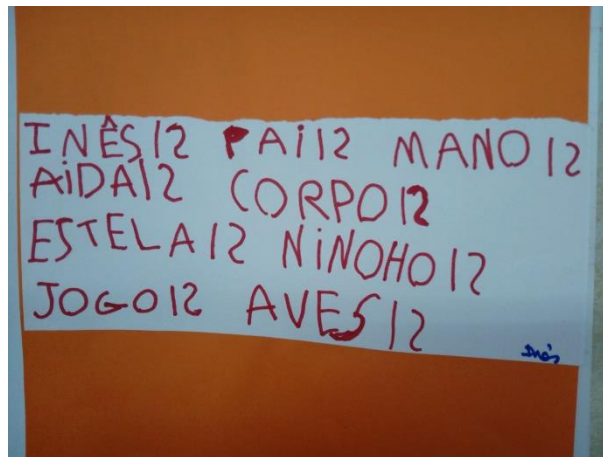 INÊS12 PAi12 MANO12
AiDA12 CORPO12
ESTELA12 NiNOHO12
JOGO12 AVES12
Inês